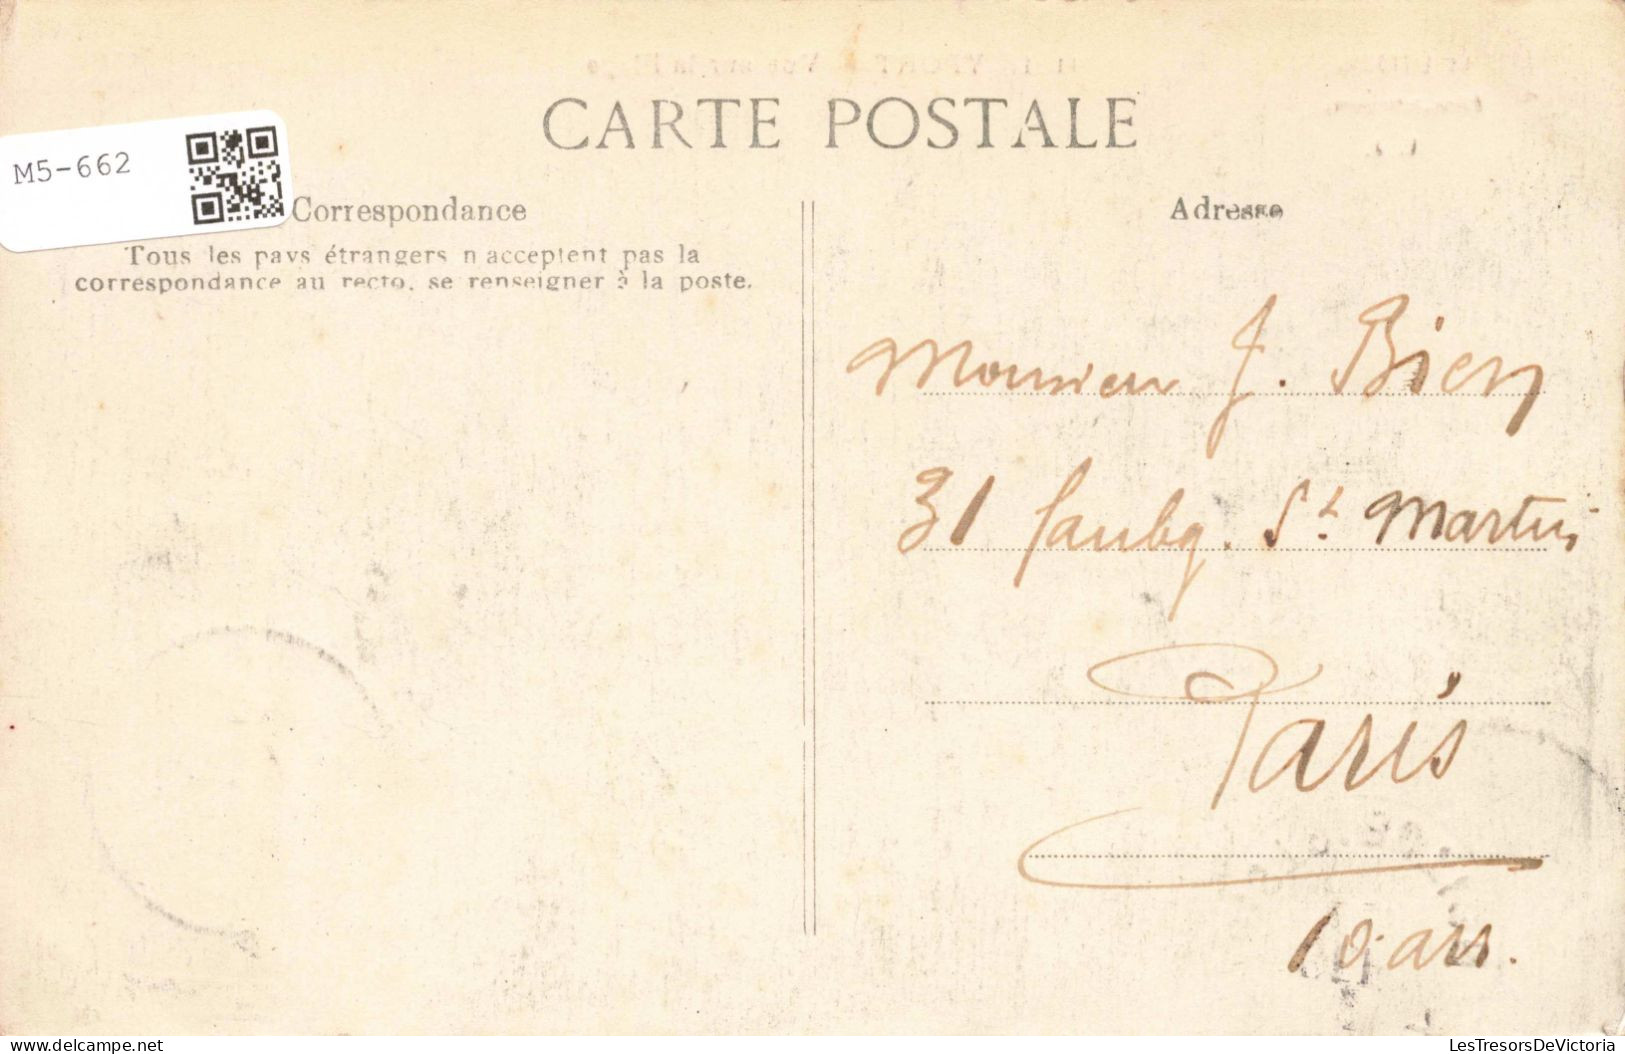 CARTE POSTALE
M5-662
Correspondance
Tous les pays étrangers n'acceptent pas la
correspondance au recto, se renseigner à la poste.
Adresse
Monsieur J. Bien
31 faubg. St. Martin
Paris
10e arr.
delcampe.net
LesTresorsDeVictoria